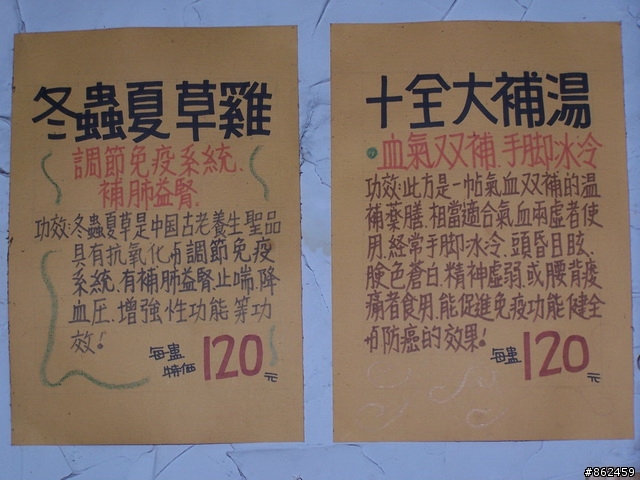 冬蟲夏草雞
調節免疫系統.
補肺益腎.
功效:冬蟲夏草是中国古老養生聖品
具有抗氧化.調節免疫
系統.有補肺益腎.止喘.降
血圧.增強性功能等功
效!
每盅
特価
120元
十全大補湯
血氣双双補.手脚冰冷
功効:此方是一帖氣血双補的温
補薬膳.相當適合氣血兩虛者使
用.経常手脚冰冷.頭昏目眩.
臉色蒼白.精神虛弱.或腰背痠
痛者食用.能促進免疫功能健全
防癌的效果!
每盅120元
#862459